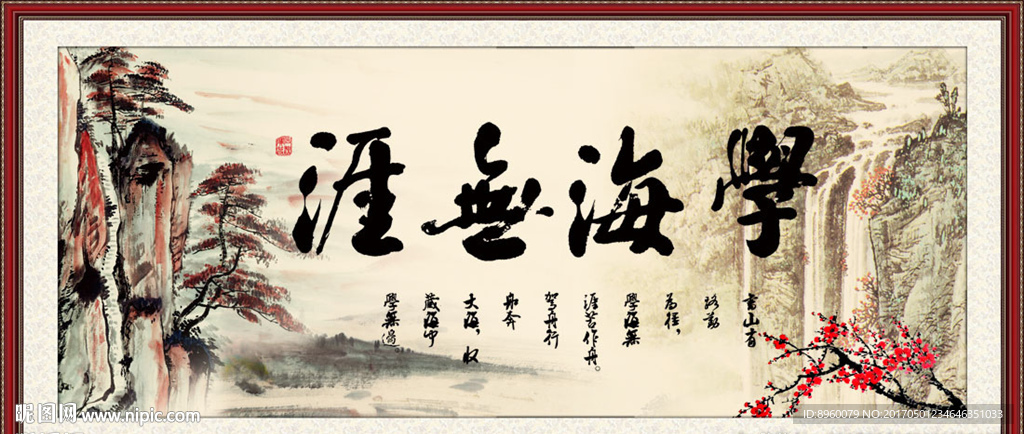 學海無涯
書山有
路勤
為徑，
學海無
涯苦作舟。
駕舟行
奔
大海，
藏海
學無邊
昵图网 www.nipic.com
ID:8960079 NO:20170501234646351033